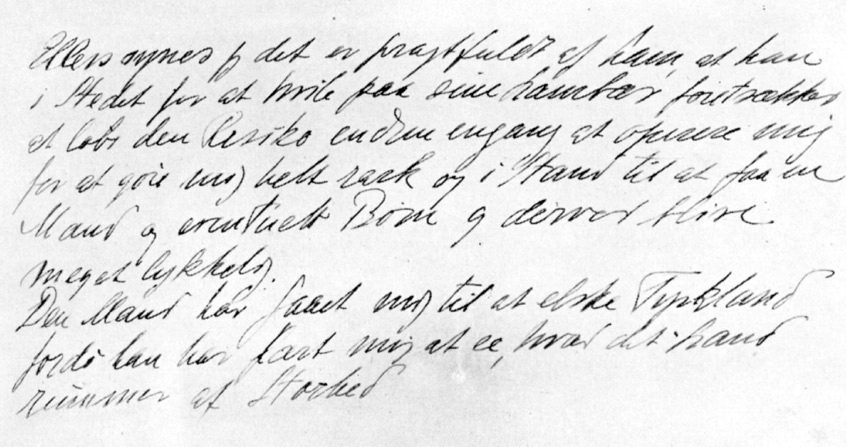 Ellers synes jeg det er pragtfuldt af ham, at han
i Stedet for at hvile paa sine Laurbær, foretrækker
at løbe den Risiko endnu engang at operere mig
for at gøre mig helt rask og i Stand til at faa en
Mand og eventuelt Børn og derved blive
meget lykkelig.
Den Mand har faaet mig til at elske Tyskland
fordi han har lært mig at se, hvad det Land
rummer af Storhed